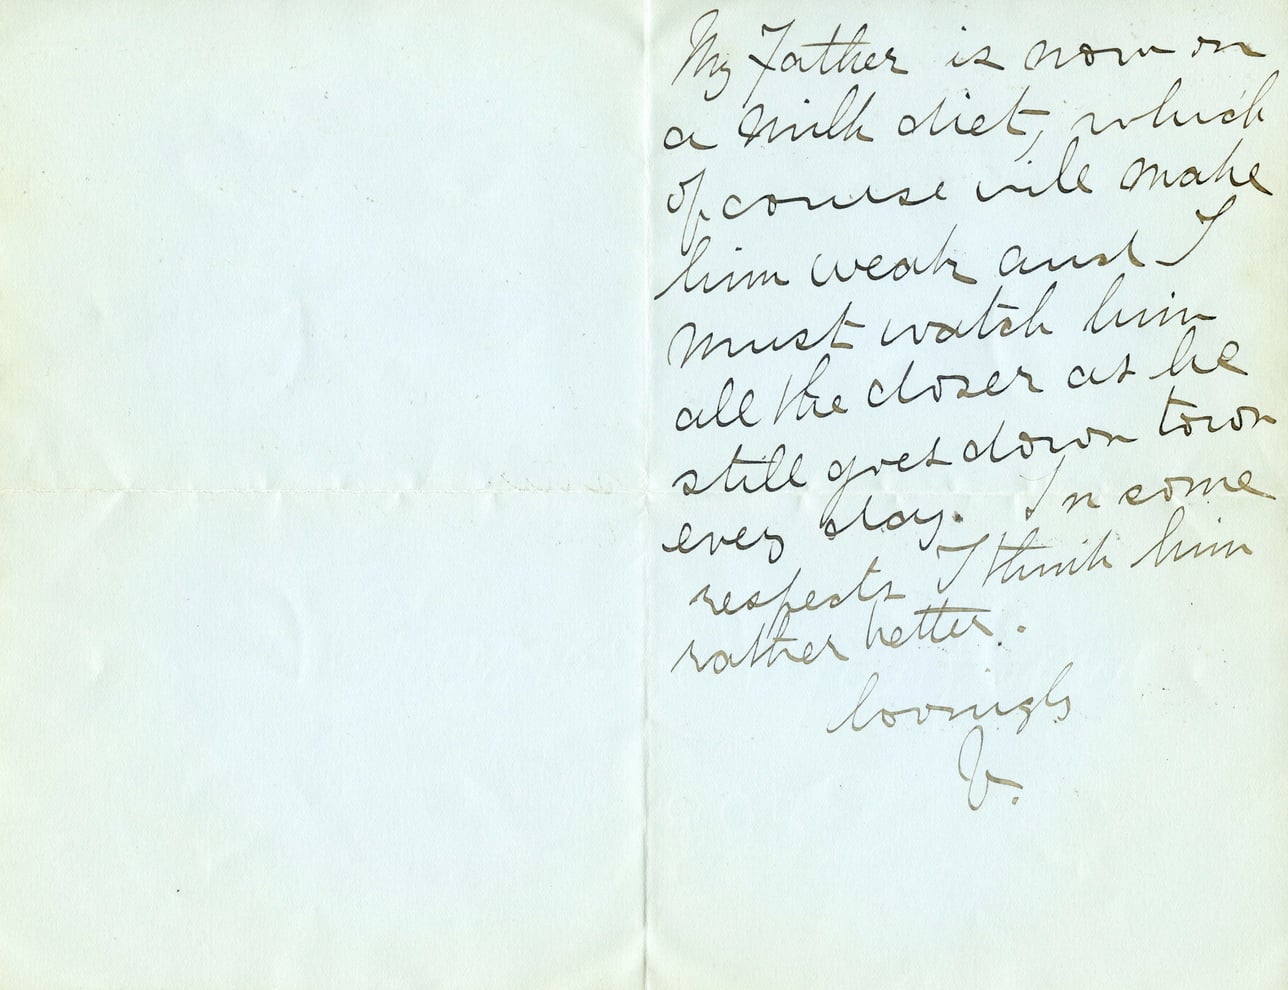 My Father is now on
a milk diet, which
of course will make
him weak and I
must watch him
all the closer as he
still goes down town
every day. In some
respects I think him
rather better.
Lovingly
V.